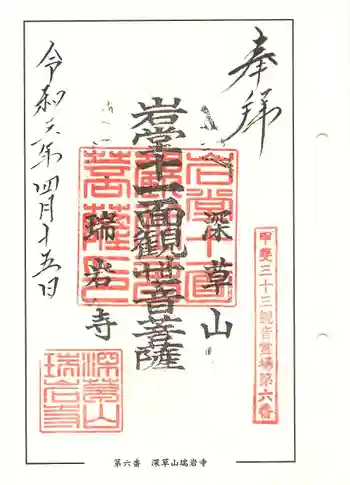 奉拝
甲斐三十三観音霊場第六番
深草山
岩堂十一面観世音菩薩
瑞岩寺
令和六年四月十五日
岩堂十一面
観世音
菩薩印
深草山
瑞岩寺
第六番　深草山瑞岩寺